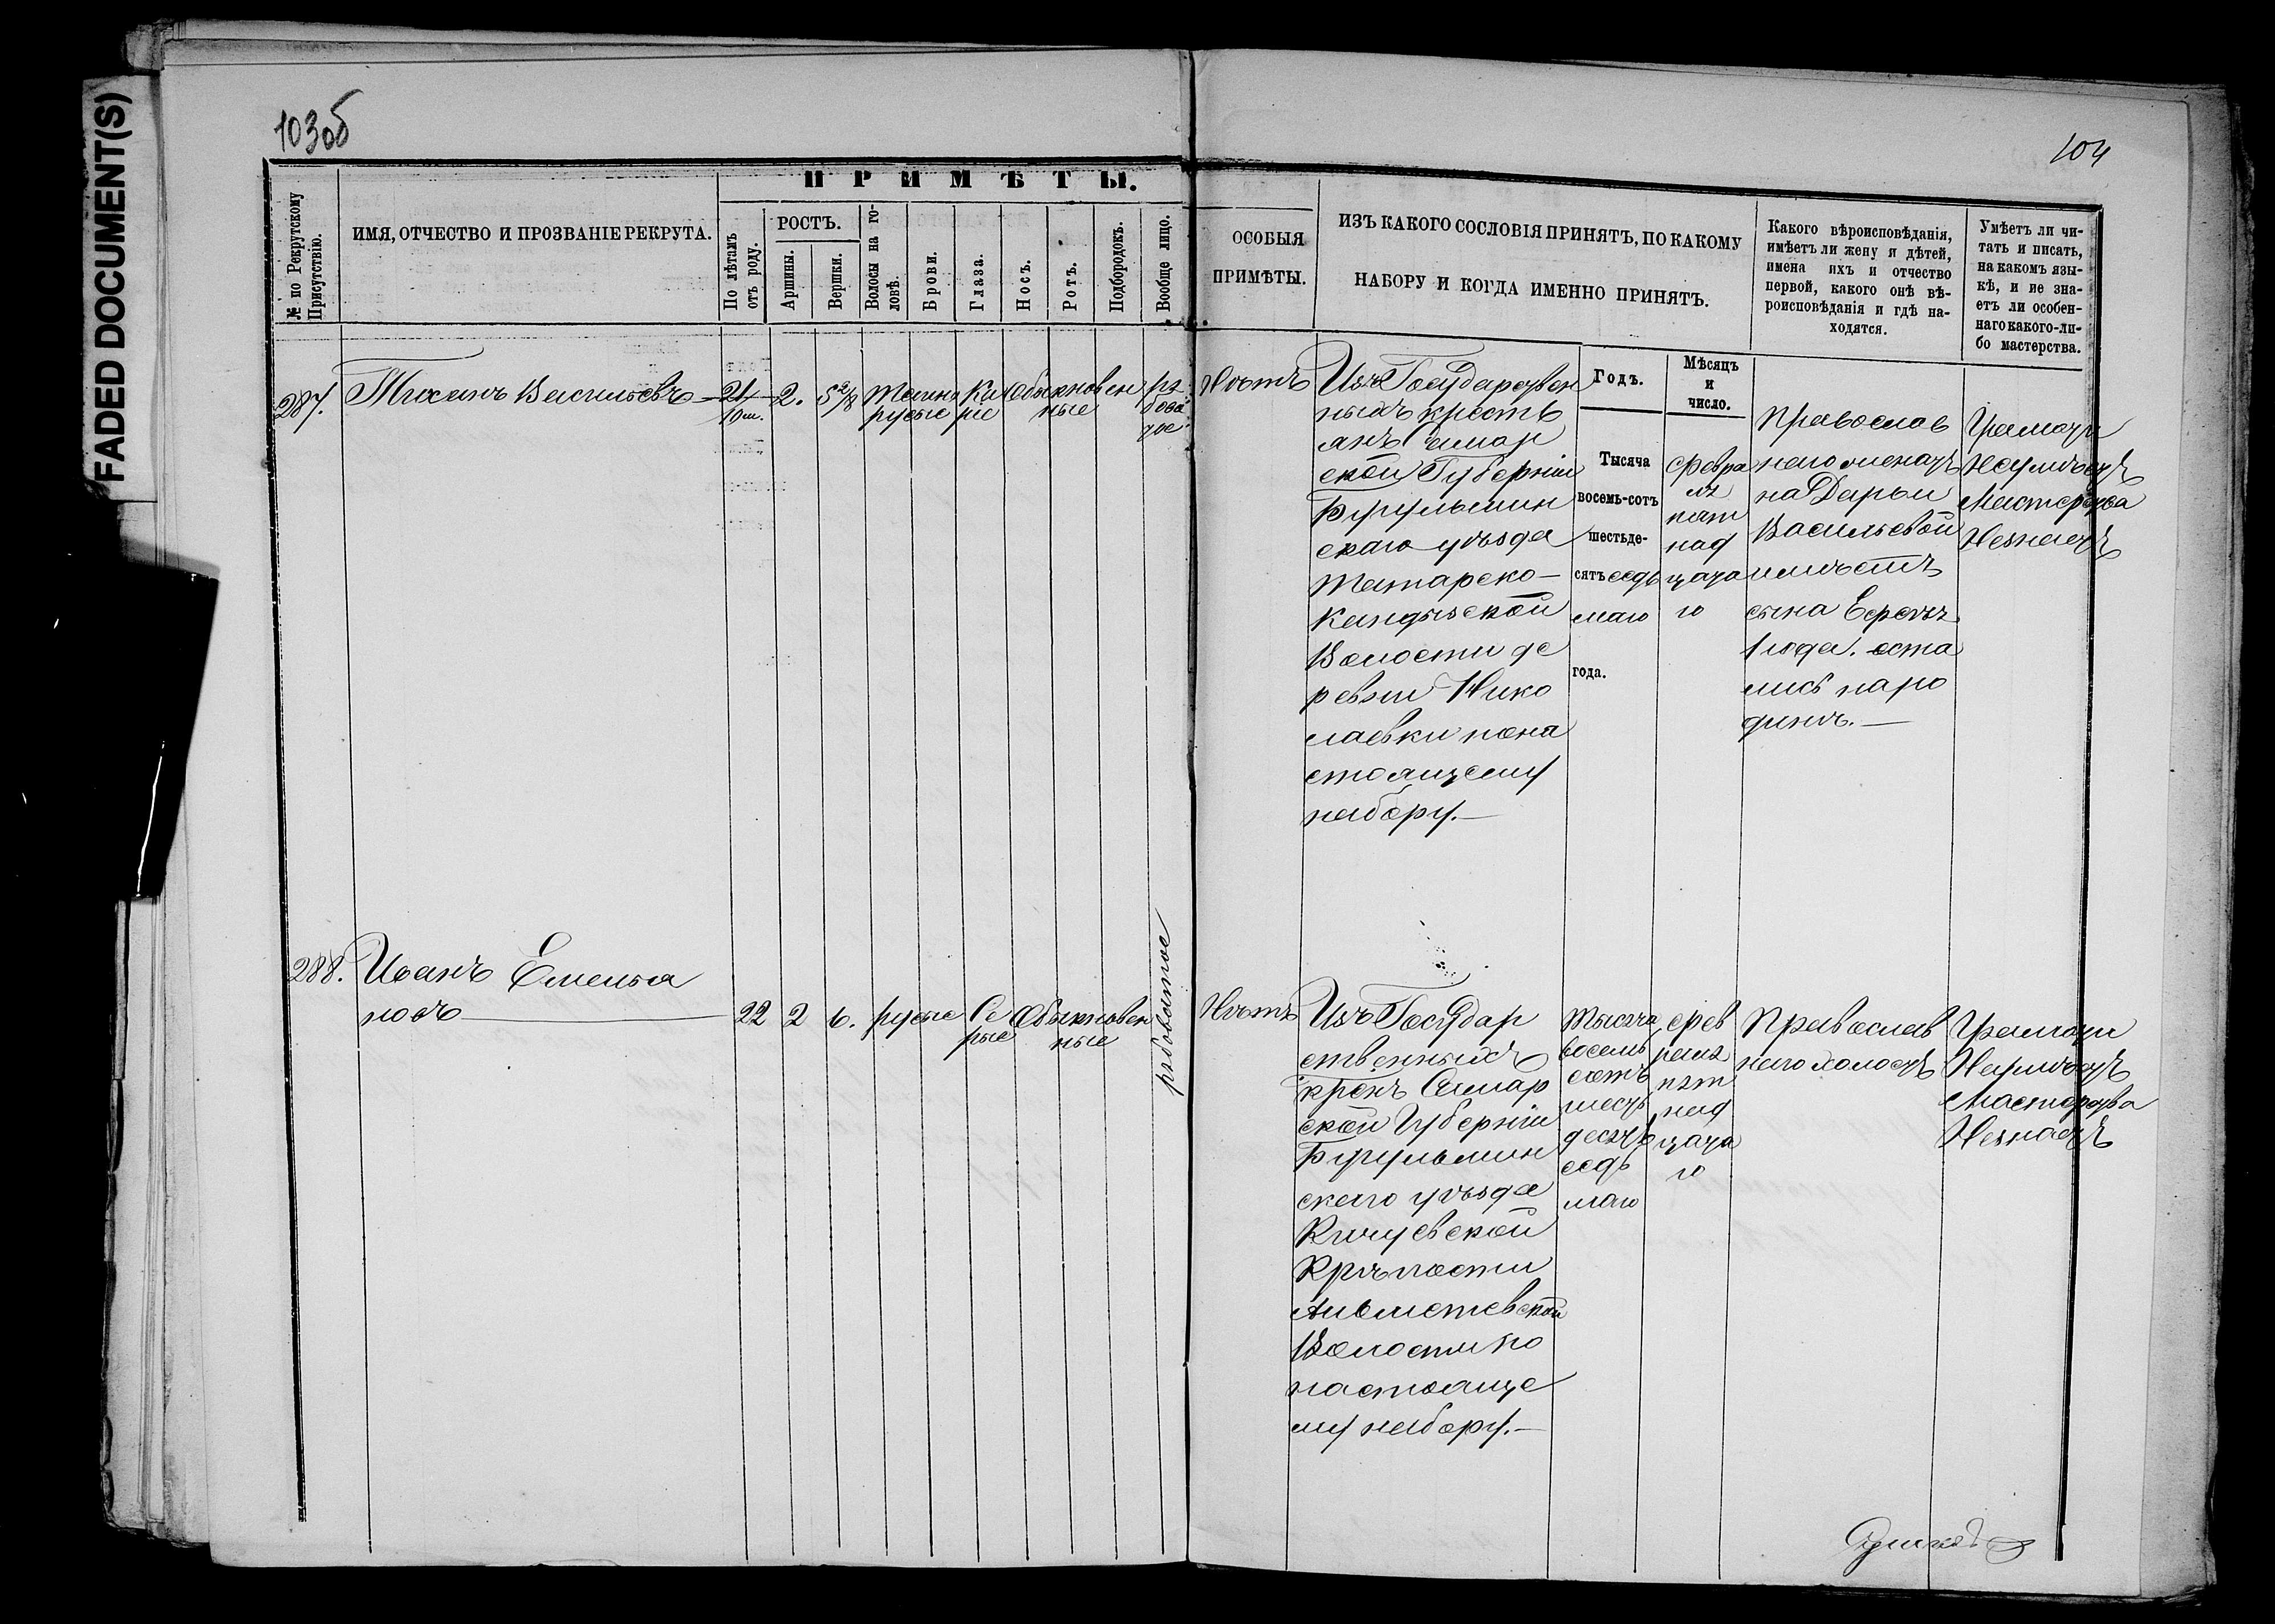 FADED DOCUMENT(S)
103об
104
ПРИМѢТЫ.
№ по Рекрутскому
Присутствію.
ИМЯ, ОТЧЕСТВО И ПРОЗВАНІЕ РЕКРУТА.
По лѣтамъ
отъ роду.
РОСТЪ.
Аршины.
Вершки.
Волосы на го-
ловѣ.
Брови.
Глаза.
Носъ.
Ротъ.
Подбородокъ.
Вообще лицо.
ОСОБЫЯ
ПРИМѢТЫ.
ИЗЪ КАКОГО СОСЛОВІЯ ПРИНЯТЪ, ПО КАКОМУ
НАБОРУ И КОГДА ИМЕННО ПРИНЯТЪ.
Какого вѣроисповѣданія,
имѣетъ ли жену и дѣтей,
имена ихъ и отчество
первой, какого онѣ вѣ-
роисповѣданія и гдѣ на-
ходятся.
Умѣетъ ли чи-
тать и писать,
на какомъ язы-
кѣ, и не зна-
етъ ли особен-
наго какого-ли-
бо мастерства.
287.
Тиханъ Васильевъ
21
10 м.
2.
5 2/8
Темно
русые
Ка
ріе
Обыкновен
ные
ря
бова
тое
Нѣтъ
Изъ Государствен
ныхъ кресть
янъ Самар
ской Губерніи
Бугульмин
скаго уѣзда
Татарско-
Кандызской
Волости де
ревни Нико
лаевки пона
стоящему
набору.-
Годъ.
Тысяча
восемь-сотъ
шестьде-
сятъ седь
маго
года.
Мѣсяцъ
и
число.
Февра
ля
пят
над
цата
го
Православ
наго женатъ
на Дарьи
Васильевой
имѣетъ
сына Ефрема
1 года. оста
лись наро
динѣ.-
Грамоти
Неумѣетъ
Мастерства
Незнаетъ
288.
Иванъ Емелья
новъ
22
2
6.
русые
Се
рые
Обыкновен
ные
рябоватое
Нѣтъ
Изъ Государ
ственныхъ
крѣнъ Самар
ской Губерніи
Бугульмин
скаго уѣзда
Кичуевской
Крѣпости
Альметевской
Волости по
настояще
му набору.-
Тысяча
восемь
сотъ
шесть
десятъ
седь
маго
Фев
раля
пят
над
цата
го
Православ
наго холостъ
Грамоти
Неумѣетъ
Мастерства
Незнаетъ